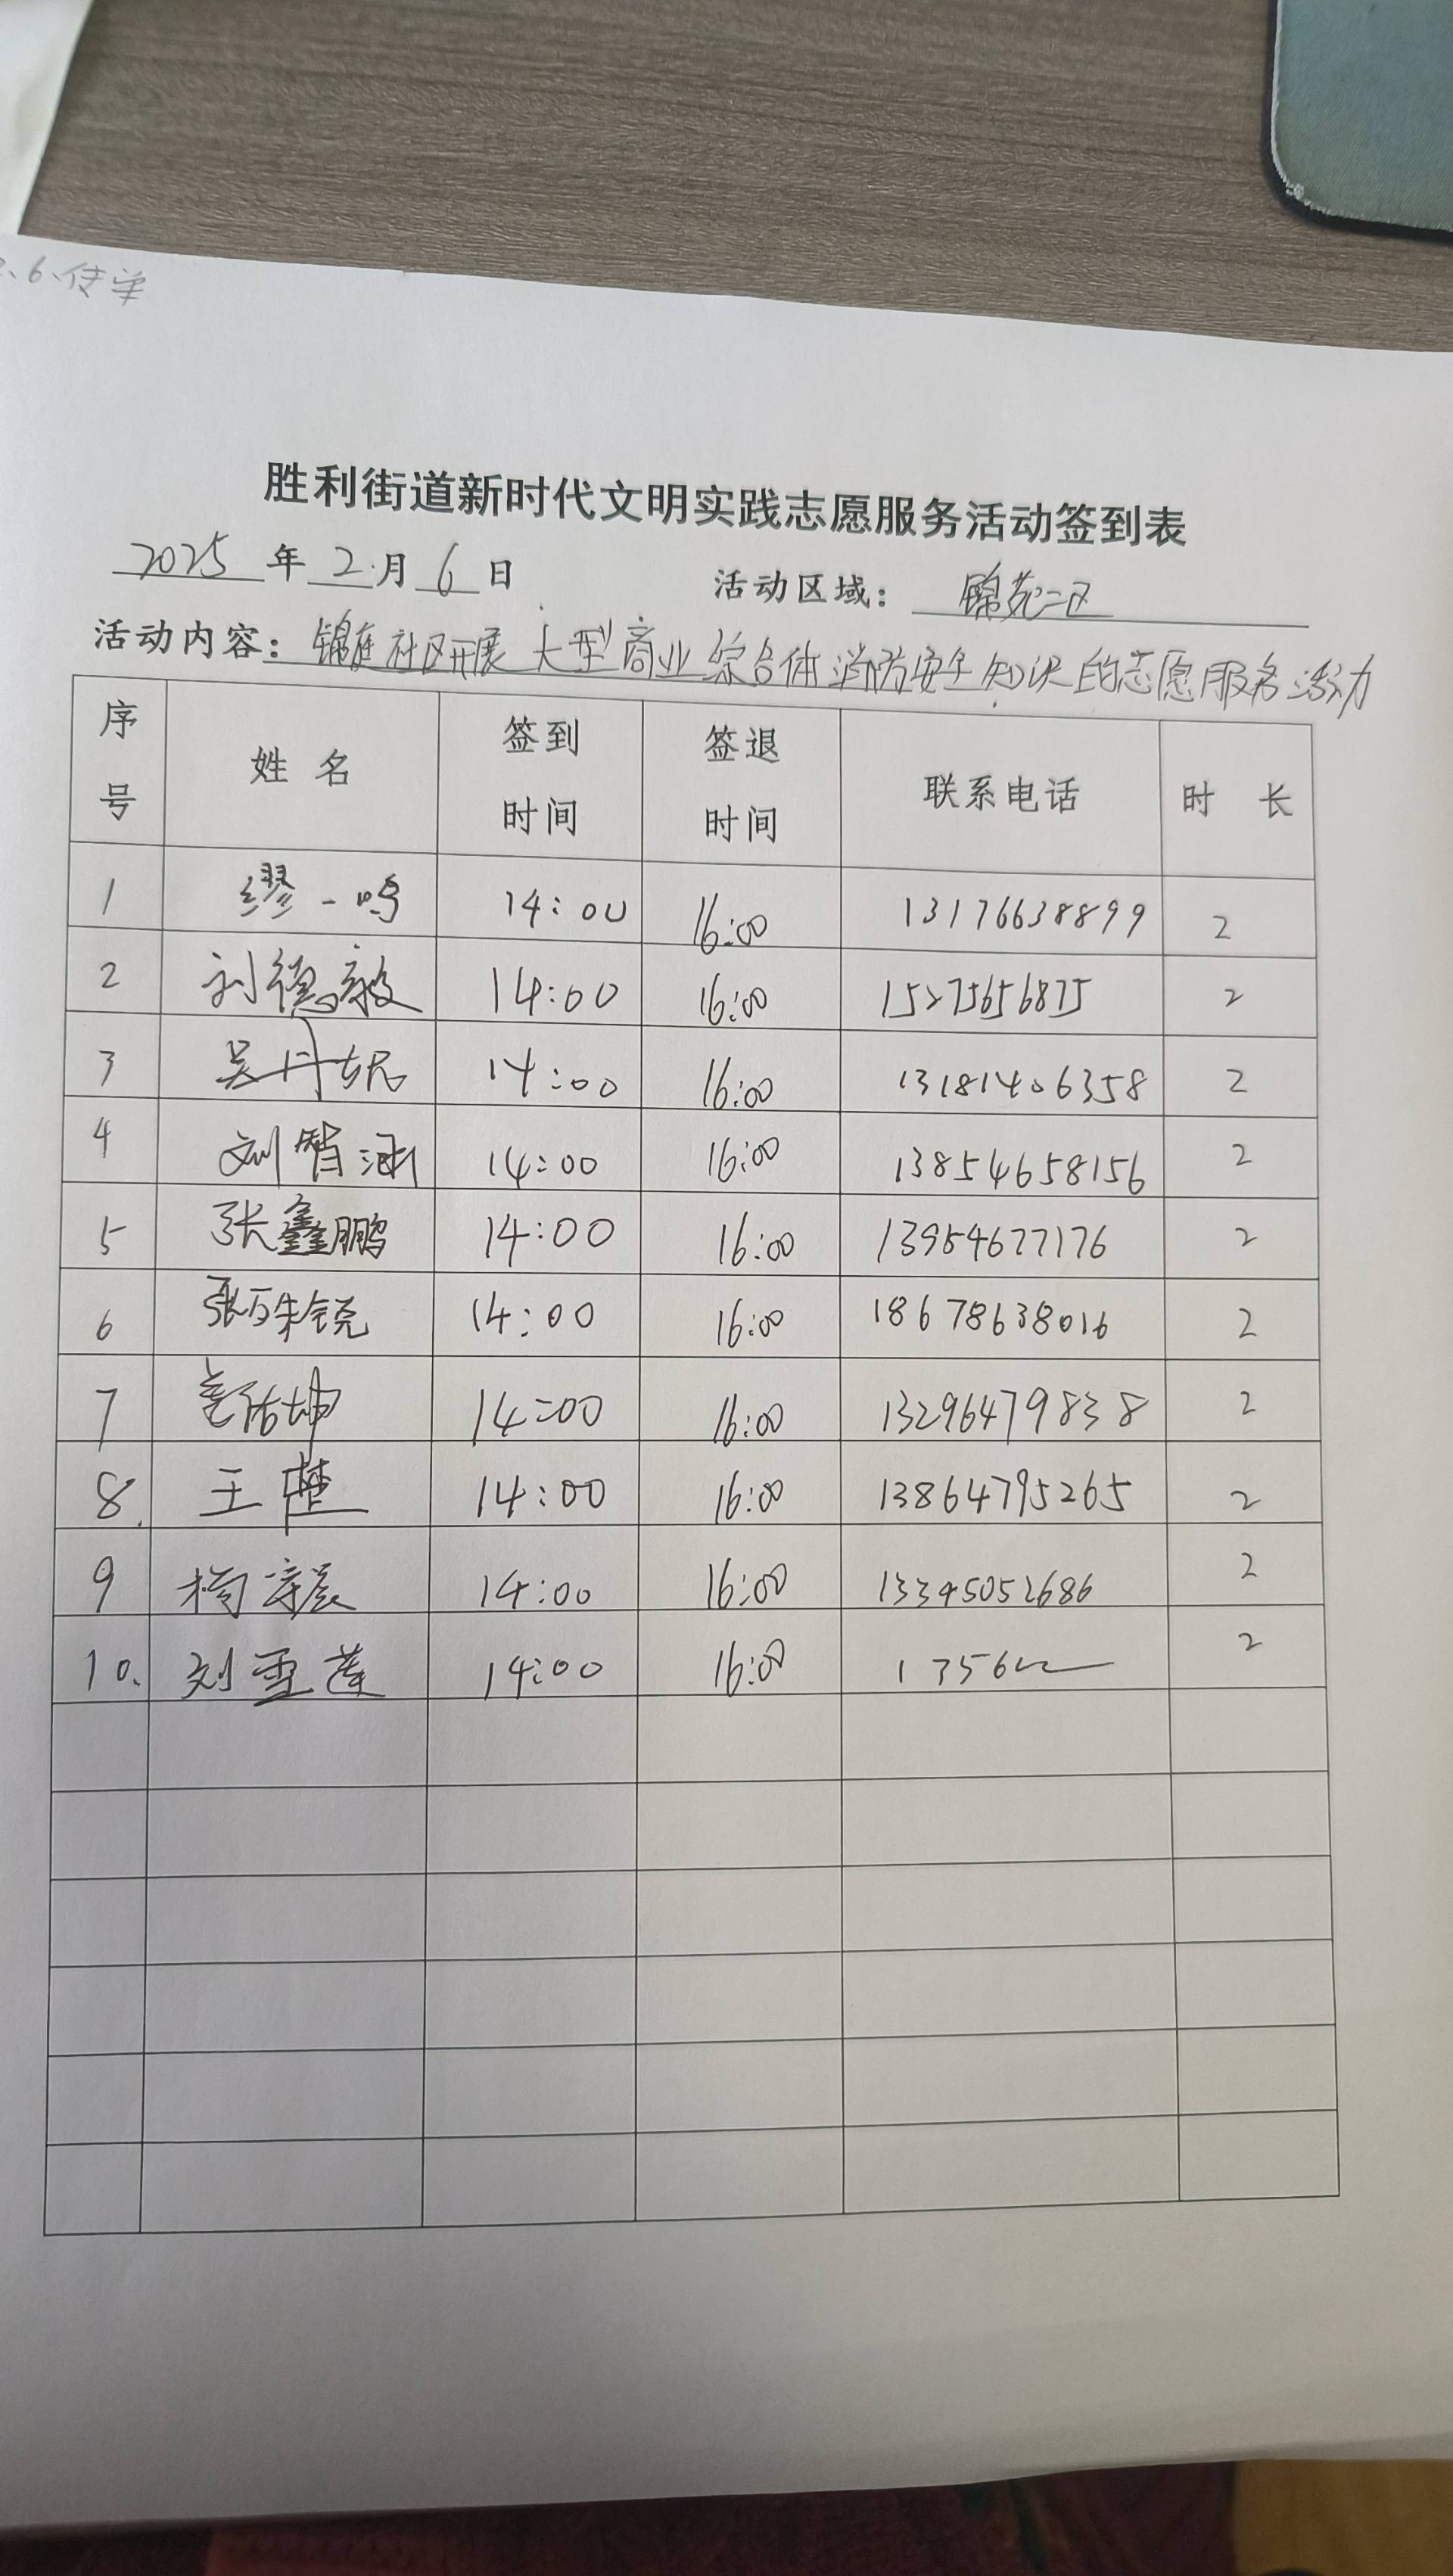 .6.传单
胜利街道新时代文明实践志愿服务活动签到表
2025年2月6日 活动区域：锦苑二区
活动内容：锦庭社区开展大型商业综合体消防安全知识的志愿服务活动
序号 姓名 签到时间 签退时间 联系电话 时长
1 缪一鸣 14:00 16:00 13176638899 2
2 刘德毅 14:00 16:00 15275656875 2
3 吴丹妮 14:00 16:00 13181406358 2
4 刘智涵 14:00 16:00 13854658156 2
5 张鑫鹏 14:00 16:00 13954677176 2
6 张 锐 14:00 16:00 18678638016 2
7 14:00 16:00 13296479838 2
8. 王 14:00 16:00 13864795265 2
9 杨 14:00 16:00 13345052686 2
10. 刘雪莲 14:00 16:00 1356 2